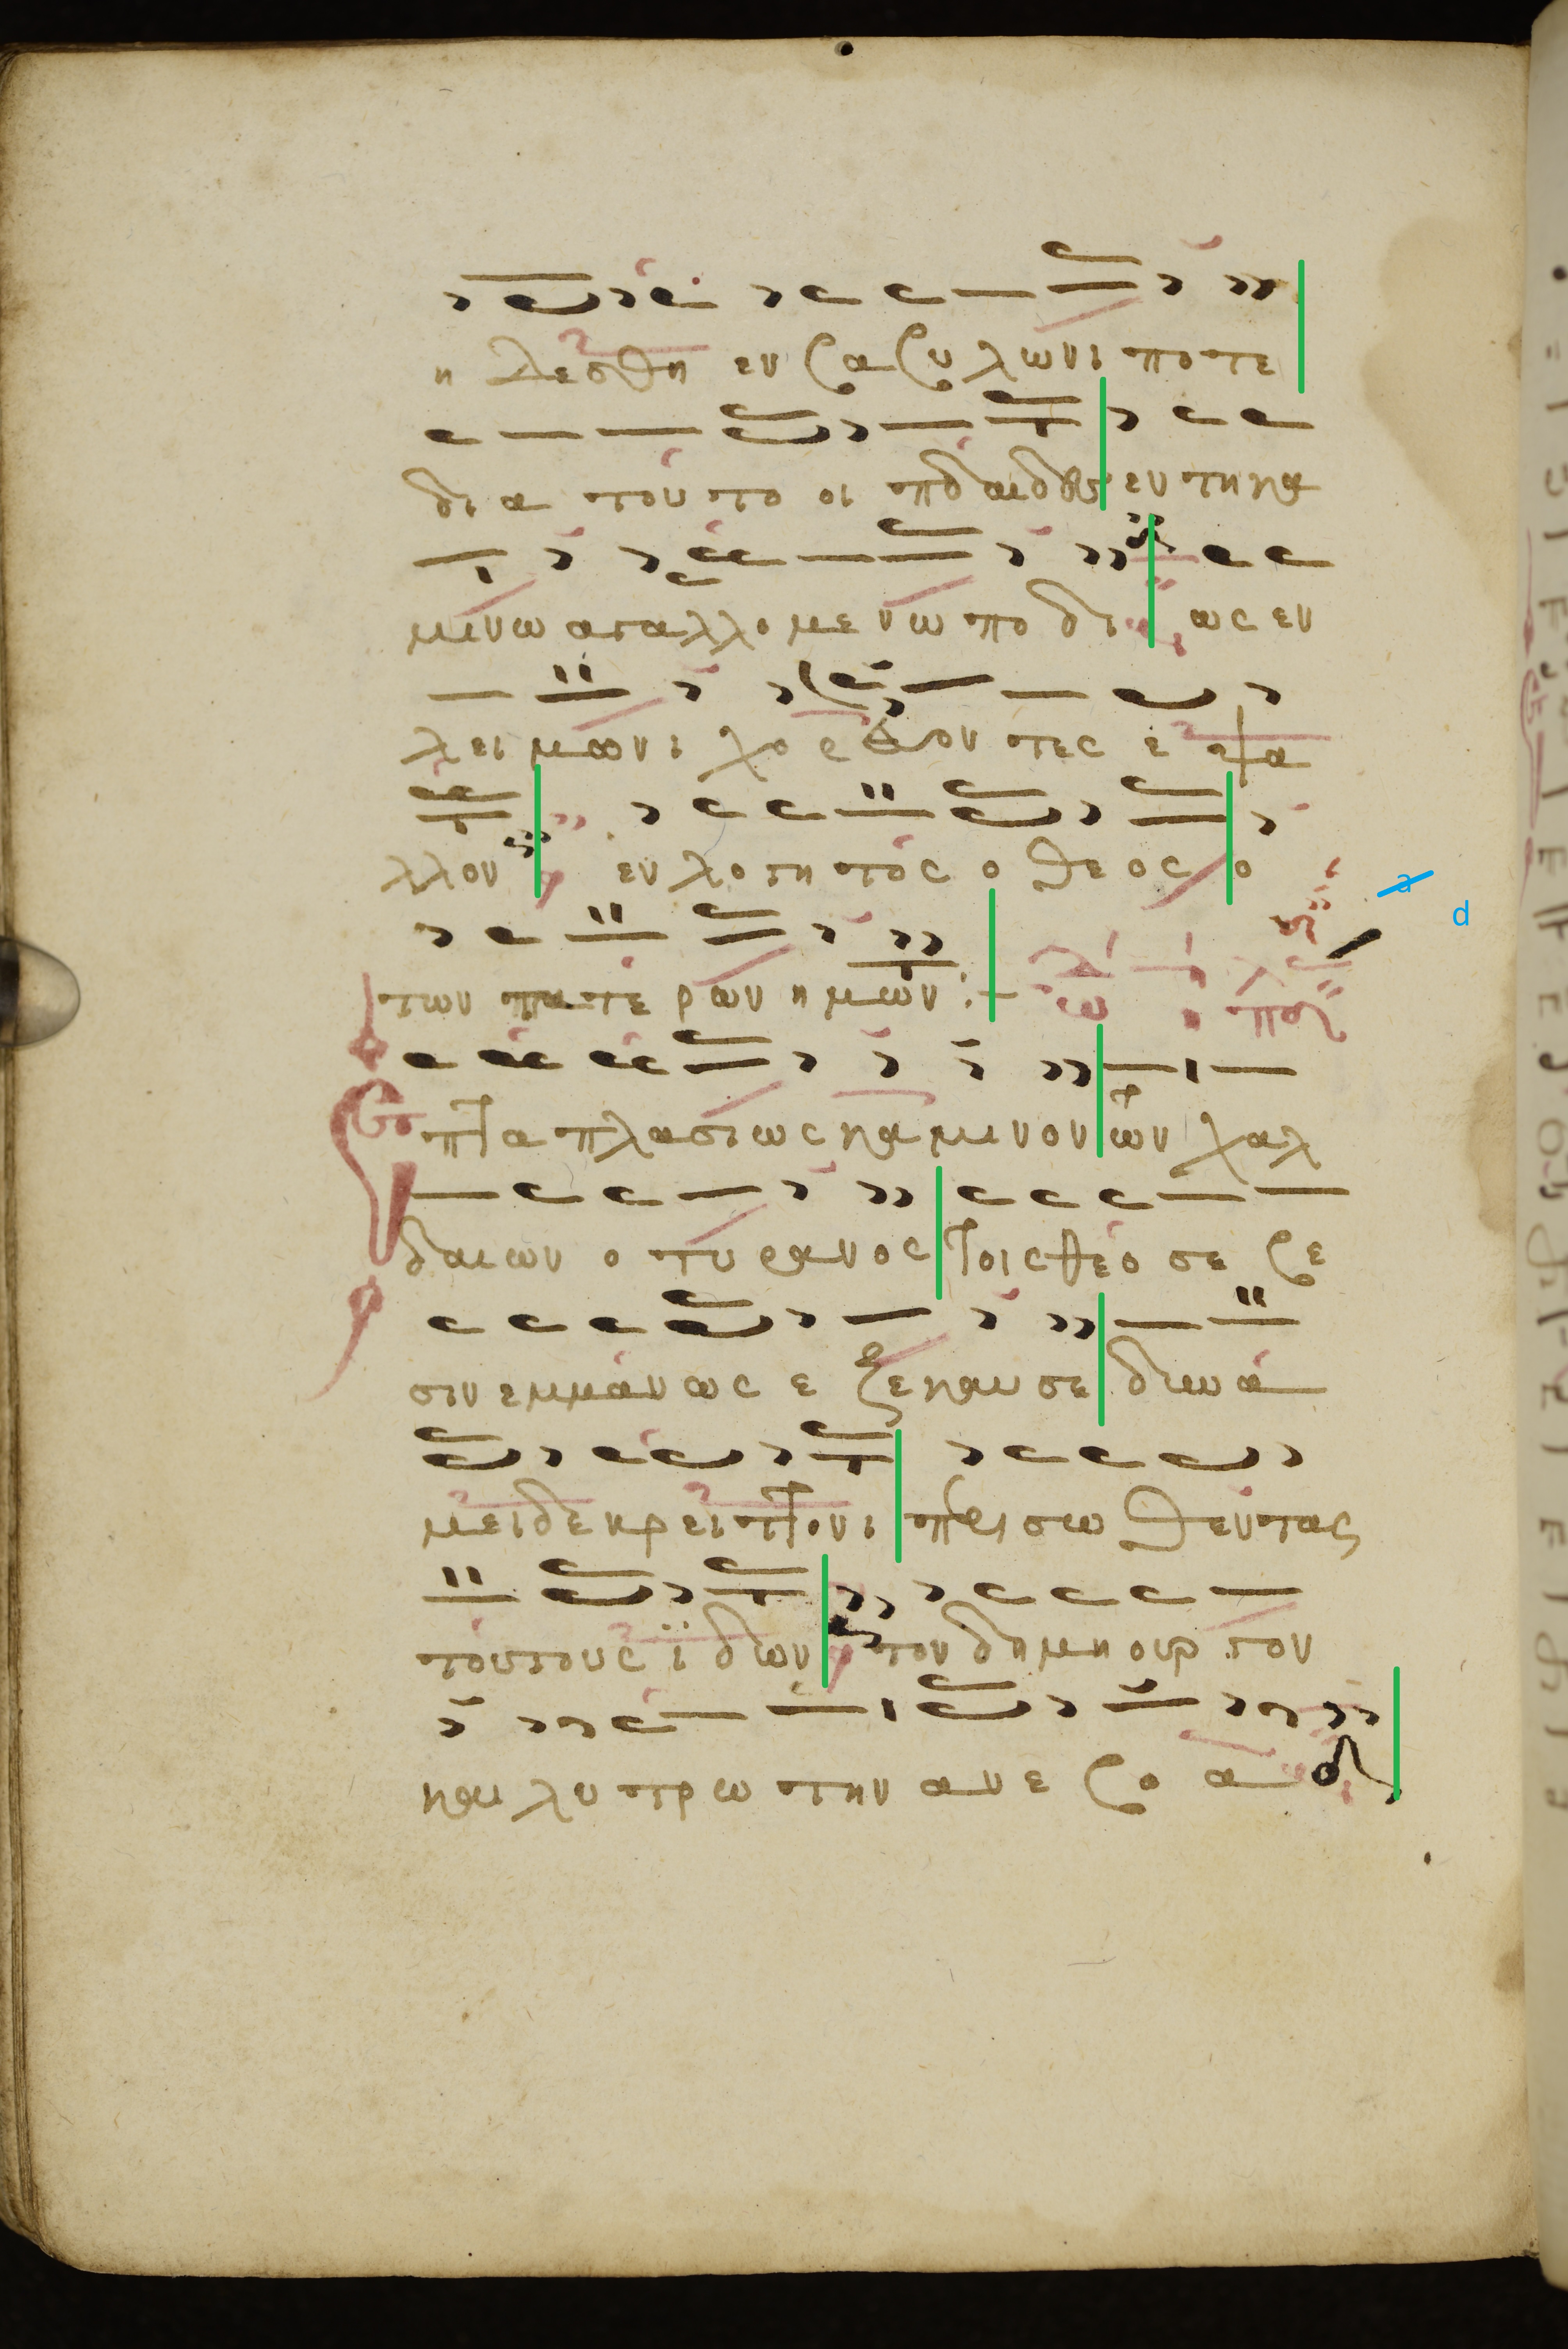 η λεσθη εν βαβυλωνι ποτε
δια τουτο οι παιδες εν τη κα
μινω αγαλλομενω ποδι ως εν
λειμωνι χορευοντες εψα
λλον ευλογητος ο θεος ο
των πατερων ημων :
Επταπλασιως καμινον των χαλ
δαιων ο τυραννος τοις θεοσεβε
σιν εμμανως εξεκαυσε δυνα
μει δε κρειττονι περισωθεντας
τουτους ϊδων τον δημιουργον
και λυτρωτην ανεβοα
a
d